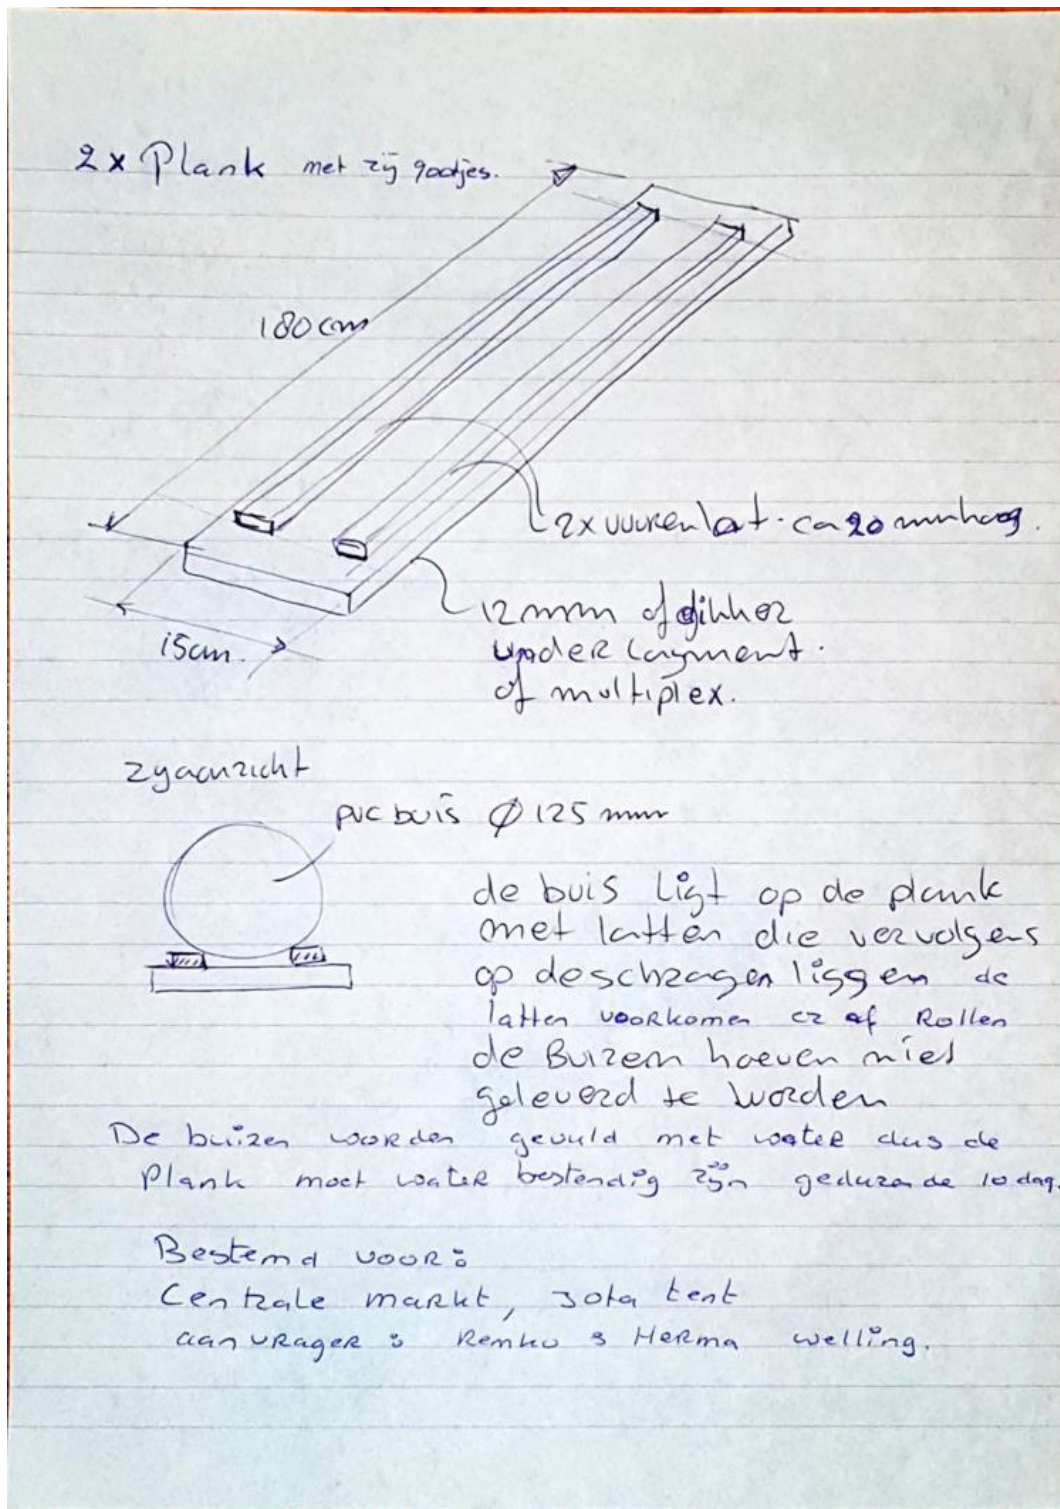 2x Plank met zij gootjes.
180 cm
2x vurenlat. ca 20 mm hoog.
12 mm of dikker
underlayment.
of multiplex.
15cm.
zyaanzicht
pvc buis Ø 125 mm
de buis ligt op de plank
met latten die vervolgens
op de schragen liggen de
latten voorkomen er af Rollen
de Buizen hoeven niet
geleverd te worden
De buizen worden gevuld met water dus de
Plank moet water bestendig zijn gedurende 10 dag.
Bestemd voor:
Centrale markt, Jota tent
aanvrager: Remko & Herma welling.